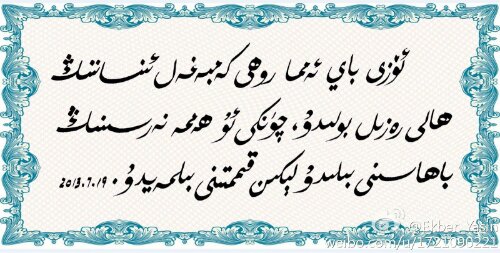 ئۆزى باي ئەمما روھى كەمبەغەل ئىنساننىڭ
ھالى رەزىل بولىدۇ، چۈنكى ئۇ ھەممە نەرسىنىڭ
باھاسىنى بىلىدۇ لېكىن قىممىتىنى بىلمەيدۇ. 2013.7.19
@Ekber_Yasin
weibo.com/u/1721090221